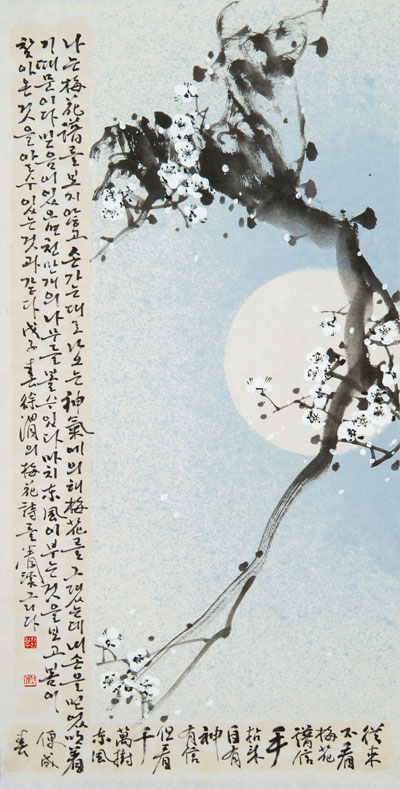 나는 梅花譜를 보지않고 손가는대로 나오는 神氣에 의해 梅花를 그렸는데 내손을 믿었
기때문이다 믿음이 있으면 천만개의 나무를 볼수있다 마치 東風이 부는것을 보고 봄이
찾아온 것을 알수 있는 것과 같다 戊子 春 徐渭의 梅花詩를 그리다
從來
不看
梅花
譜信
手
拈來
自有
神
有信
但看
千
萬樹
東風
吹着
便成
春